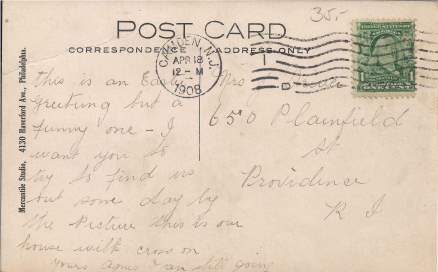 35.-
POST CARD.
CORRESPONDENCE
ADDRESS ONLY
CAMDEN, N.J.
APR 18
12-M
1908
1
D
Mercantile Studio, 4130 Haverford Ave., Philadelphia.
this is an
greeting but a
funny one - I
want you to
try to find us
out some day by
the Picture this is our
house with cross on
yours Agnes I am still going
Mrs
650 Plainfield
st
Providence
R I